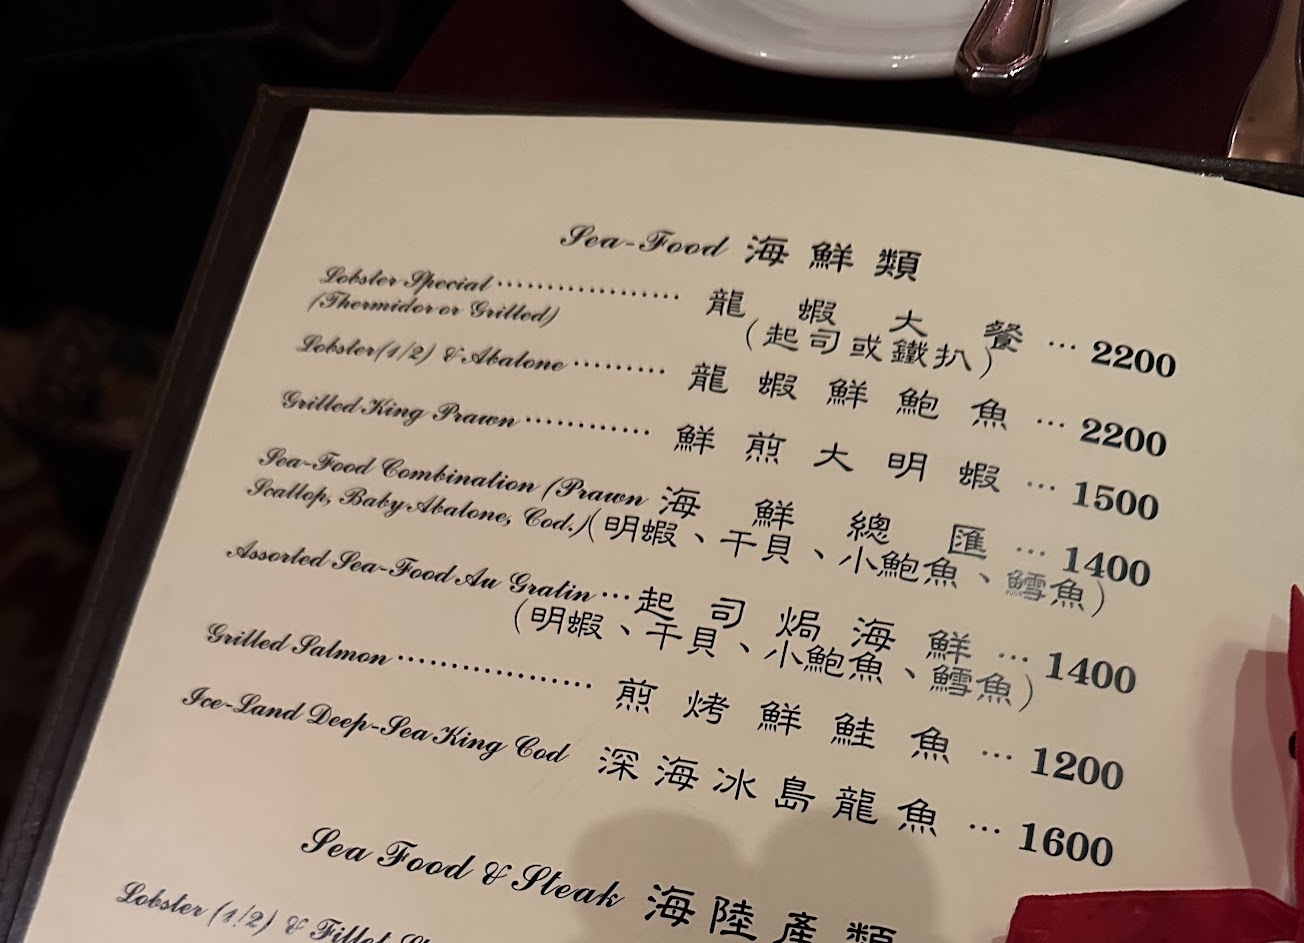 Sea-Food 海鮮類
Lobster Special .................. 龍蝦大餐 ... 2200
(Thermidor or Grilled) (起司或鐵扒)
Lobster(1/2) & Abalone ......... 龍蝦鮮鮑魚 ... 2200
Grilled King Prawn ............ 鮮煎大明蝦 ... 1500
Sea-Food Combination (Prawn 海鮮總匯 ... 1400
Scallop, Baby Abalone, Cod.) (明蝦、干貝、小鮑魚、鱈魚)
Assorted Sea-Food Au Gratin ... 起司焗海鮮 ... 1400
(明蝦、干貝、小鮑魚、鱈魚)
Grilled Salmon .................. 煎烤鮮鮭魚 ... 1200
Ice-Land Deep-Sea King Cod 深海冰島龍魚 ... 1600
Sea Food & Steak 海陸產類
Lobster (1/2) & Fillet